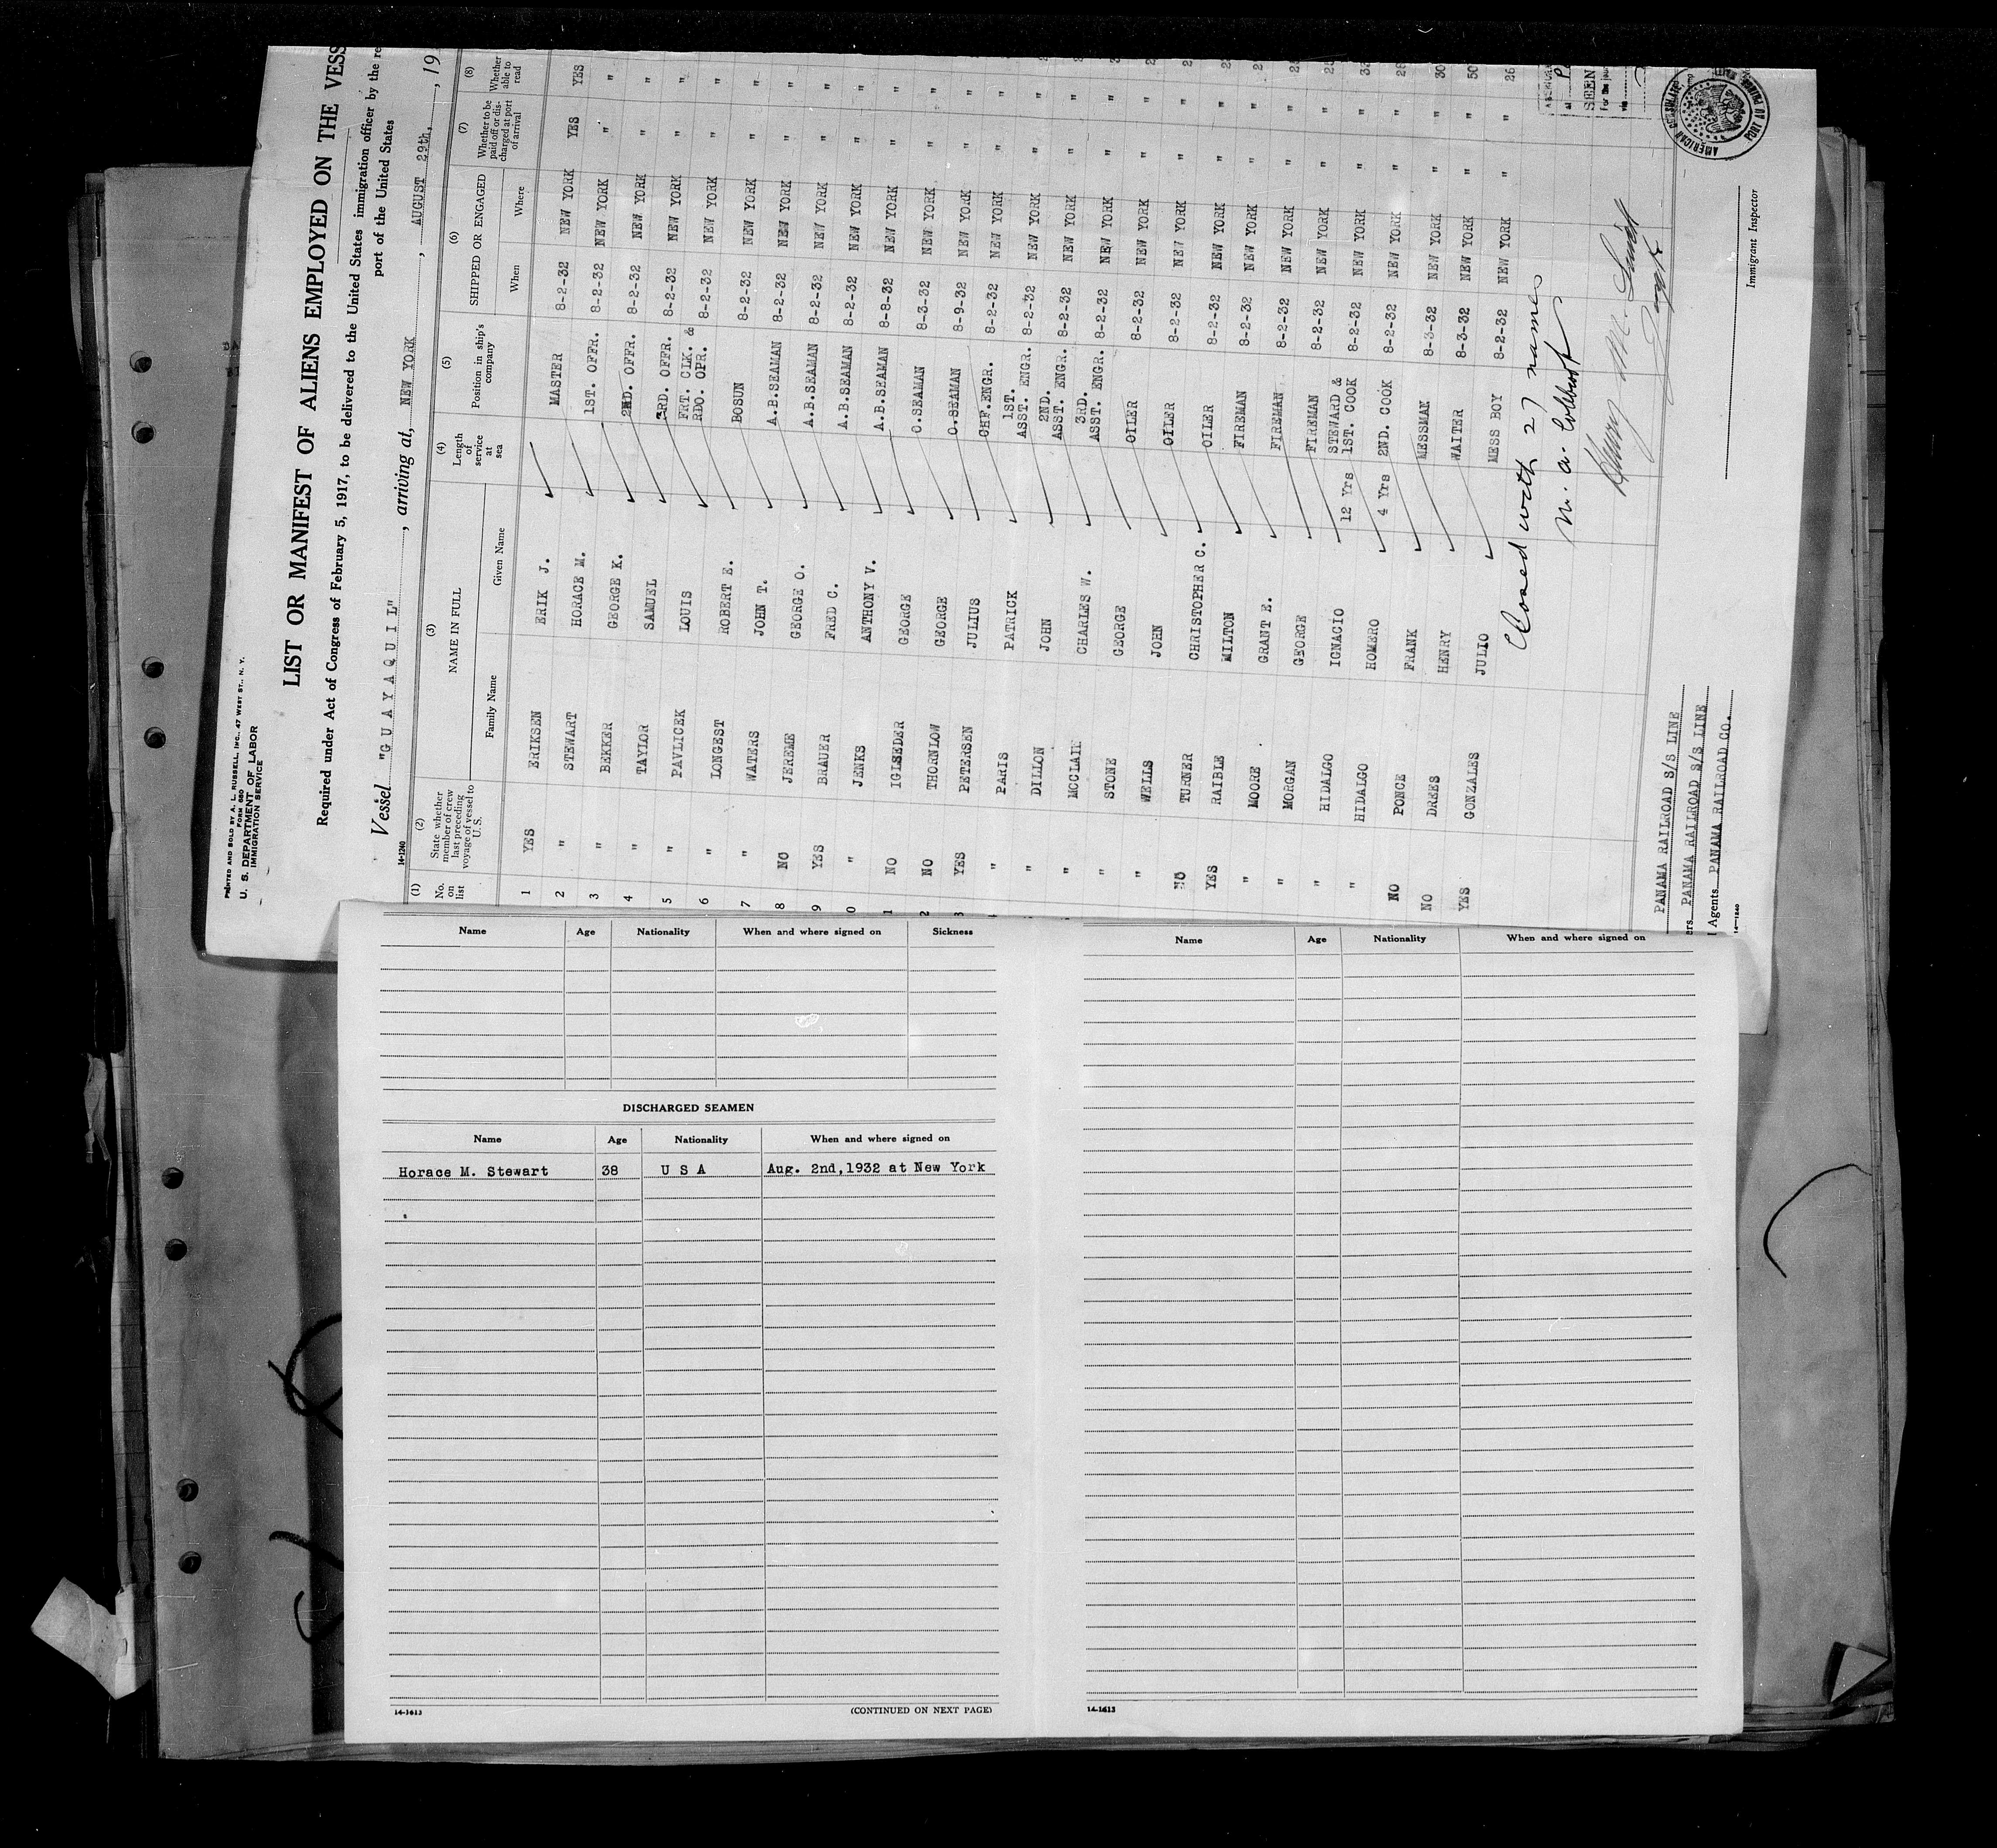 PRINTED AND SOLD BY A. L. RUSSELL, INC., 47 WEST ST., N. Y.
FORM 680
U. S. DEPARTMENT OF LABOR
IMMIGRATION SERVICE
LIST OR MANIFEST OF ALIENS EMPLOYED ON THE VESS
Required under Act of Congress of February 5, 1917, to be delivered to the United States immigration officer by the re
port of the United States
Vessel "GUAYAQUIL", arriving at, NEW YORK, AUGUST 29th, 19
14-1240
(1) No. on list (2) State whether member of crew last preceding voyage of vessel to U.S. (3) NAME IN FULL Family Name Given Name (4) Length of service at sea (5) Position in ship's company (6) SHIPPED OR ENGAGED When Where (7) Whether to be paid off or discharged at port of arrival (8) Whether able to read
1 YES ERIKSEN ERIK J. MASTER 8-2-32 NEW YORK YES YES
2 " STEWART HORACE M. 1ST. OFFR. 8-2-32 NEW YORK " "
3 " BEKKER GEORGE K. 2ND. OFFR. 8-2-32 NEW YORK " "
4 " TAYLOR SAMUEL 3RD. OFFR. 8-2-32 NEW YORK " "
5 " PAVLICEK LOUIS FRT. CLK. & RDO. OPR. 8-2-32 NEW YORK " "
6 " LONGEST ROBERT E. BOSUN 8-2-32 NEW YORK " "
7 " WATERS JOHN T. A.B.SEAMAN 8-2-32 NEW YORK " "
8 NO JEREME GEORGE O. A.B.SEAMAN 8-2-32 NEW YORK " "
9 YES BRAUER FRED C. A.B.SEAMAN 8-2-32 NEW YORK " "
0 " JENKS ANTHONY V. A.B.SEAMAN 8-8-32 NEW YORK " "
1 NO IGLSEDER GEORGE O.SEAMAN 8-3-32 NEW YORK " "
2 NO THORNLOW GEORGE O.SEAMAN 8-9-32 NEW YORK " "
3 YES PETERSEN JULIUS CHF.ENGR. 8-2-32 NEW YORK " "
" PARIS PATRICK 1ST. ASST. ENGR. 8-2-32 NEW YORK " "
" DILLON JOHN 2ND. ASST. ENGR. 8-2-32 NEW YORK " "
" MCCLAIN CHARLES W. 3RD. ASST. ENGR. 8-2-32 NEW YORK " "
" STONE GEORGE OILER 8-2-32 NEW YORK " "
" WELLS JOHN OILER 8-2-32 NEW YORK " "
NO TURNER CHRISTOPHER C. OILER 8-2-32 NEW YORK " "
YES RAIBLE MILTON FIREMAN 8-2-32 NEW YORK " "
" MOORE GRANT E. FIREMAN 8-2-32 NEW YORK " "
" MORGAN GEORGE FIREMAN 8-2-32 NEW YORK " "
" HIDALGO IGNACIO 12 Yrs STEWARD & 1ST. COOK 8-2-32 NEW YORK " "
" HIDALGO HOMERO 4 Yrs 2ND. COOK 8-2-32 NEW YORK " "
NO PONCE FRANK MESSMAN 8-3-32 NEW YORK " "
NO DREES HENRY WAITER 8-3-32 NEW YORK " "
YES GONZALES JULIO MESS BOY 8-2-32 NEW YORK " "
Closed with 27 names
PANAMA RAILROAD S/S LINE
ers PANAMA RAILROAD S/S LINE
l Agents PANAMA RAILROAD CO.
14-1240
Immigrant Inspector
SEEN
For the jour
AMERICAN CONSULATE
PORT AU PRINCE
Name Age Nationality When and where signed on Sickness
DISCHARGED SEAMEN
Name Age Nationality When and where signed on
Horace M. Stewart 38 U S A Aug. 2nd,1932 at New York
14-1613
(CONTINUED ON NEXT PAGE)
Name Age Nationality When and where signed on
14-1613